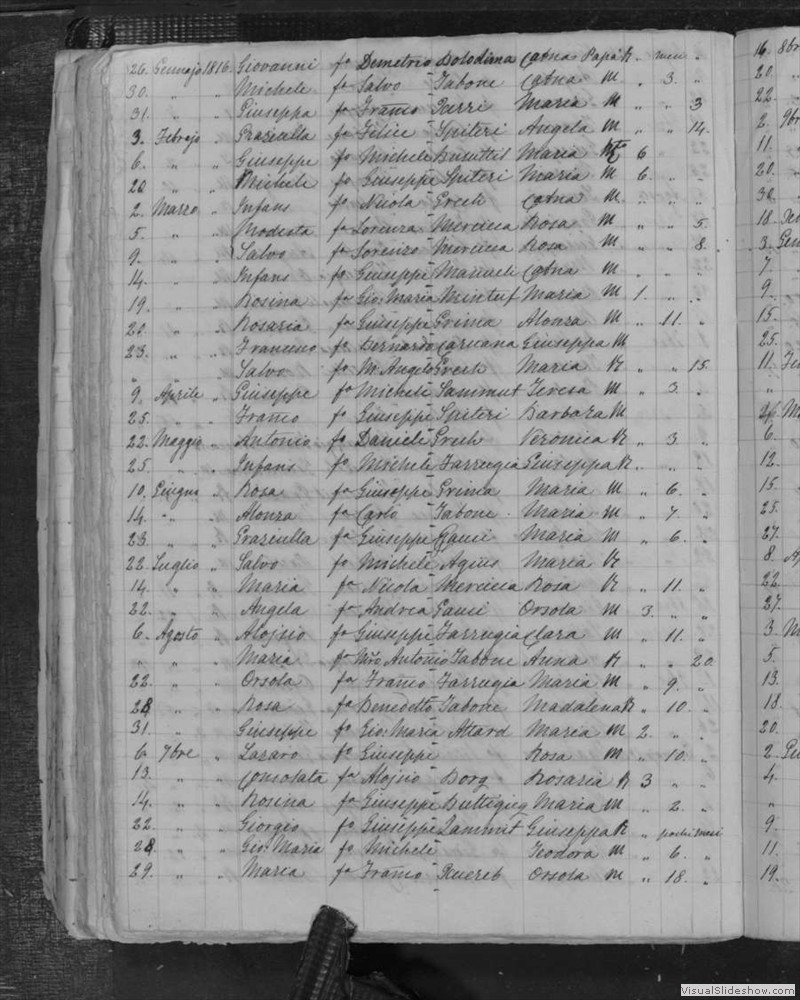 26. Gennajo 1816. Giovanni fo Demetrio Bolodima Catna Papà R. „ mesi „
30. „ „ Michele fo Salvo Tabone Catna M „ 3. „
31. „ „ Giuseppa fa Franco Zarri Maria M „ „ 3
3. Febrajo „ Graziulla fa Felice Spiteri Angela M „ „ 14.
6. „ „ Giuseppe fo Michele Busuttil Maria 6 „
20 „ „ Michele fo Giuseppe Spiteri Maria M 6. „ „
2. Marzo „ Infans fo Nicola Grech Catna M „
5. „ „ Modesta fa Lorenzo Mercieca Rosa M „ „ 5.
9. „ „ Salvo fo Lorenzo Mercieca Rosa M „ „ 8.
14. „ „ Infans fo Giuseppe Manueli Catna M „
19. „ „ Rosina fa Gio: Maria Mintuf Maria M 1. „ „
20. „ „ Rosaria fa Giuseppe Grima Alonza M „ 11. „
23. „ „ Francesco fo Bernardo Caruana Giuseppa M
„ „ Salvo fo M. Angelo Grech Maria R „ „ 15.
9. Aprile „ Giuseppe fo Michele Sammut Teresa M „ 3. „
25. „ „ Franco fo Giuseppe Spiteri Barbara M
22. Maggio „ Antonio fo Daniele Grech Veronica R „ 3. „
25. „ „ Infans fo Michele Farrugia Giuseppa R. „ „
10. Giugno „ Rosa fa Giuseppe Grima Maria M „ 6. „
14. „ „ Alonza fa Carlo Tabone Maria M „ 7. „
23. „ „ Graziulla fa Giuseppe Gauci Maria M „ 6. „
22. Luglio „ Salvo fo Michele Agius Maria R
14. „ „ Maria fa Nicola Mercieca Rosa R „ 11. „
22. „ „ Angela fa Andrea Gauci Orsola M 3. „ „
6. Agosto „ Alojsio fo Giuseppe Farrugia Clara M „ 11. „
„ „ „ Maria fa Mro Antonio Tabone Anna R „ „ 20.
22. „ „ Orsola fa Franco Farrugia Maria M „ 9. „
28 „ „ Rosa fa Benedetto Tabone Madalena R „ 10. „
31. „ „ Giuseppe fo Gio: Maria Attard Maria M 2. „ „
6 7bre „ Lazaro fo Giuseppe Rosa M „ 10. „
13. „ „ Consolata fa Alojsio Borg Rosaria R 3 „ „
14. „ „ Rosina fa Giuseppe Buttigieg Maria M „ 2. „
22. „ „ Giorgio fo Giuseppe Zammit Giuseppa R „ pochi mesi
28. „ „ Gio: Maria fo Michele Teodora M „ 6. „
29. „ „ Maria fa Franco Xuereb Orsola M „ 18. „
16. 8br
20.
22.
2. 9br
11.
20.
30.
18.
3. Gen
7.
9.
15.
25.
11.
„
6.
12.
15.
25.
27.
8. A
22
27.
3. M
5.
13.
18.
20.
2
4.
„
9.
11.
19.
VisualSlideshow.com